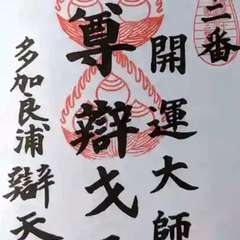 二番
開運大師
尊辯戈
多加良浦辯天